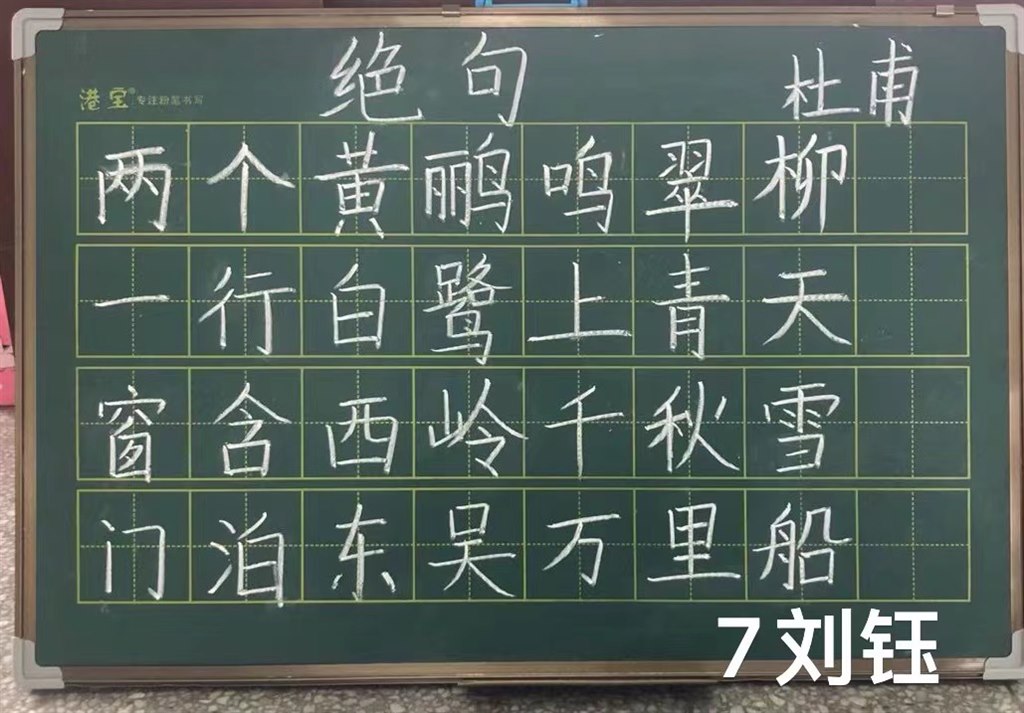 绝句 杜甫
港宝® 专注粉笔书写
两个黄鹂鸣翠柳
一行白鹭上青天
窗含西岭千秋雪
门泊东吴万里船
7 刘钰